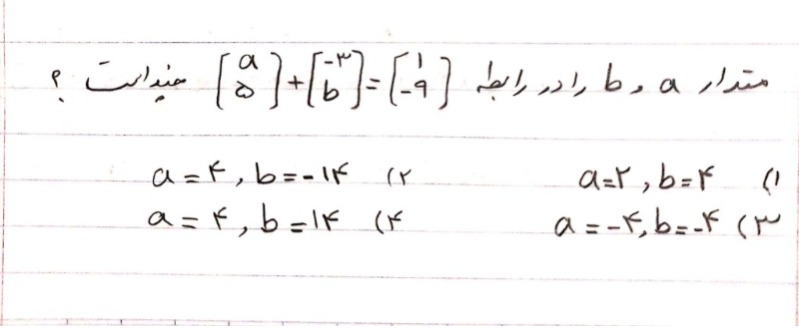 مقدار a و b را در رابطه [a ۵] + [-۳ b] = [۱ -۹] چند است ؟
۱) a=۲ , b=۴ ۲) a=۴ , b=-۱۴
۳) a=-۴, b=-۴ ۴) a=۴ , b=۱۴